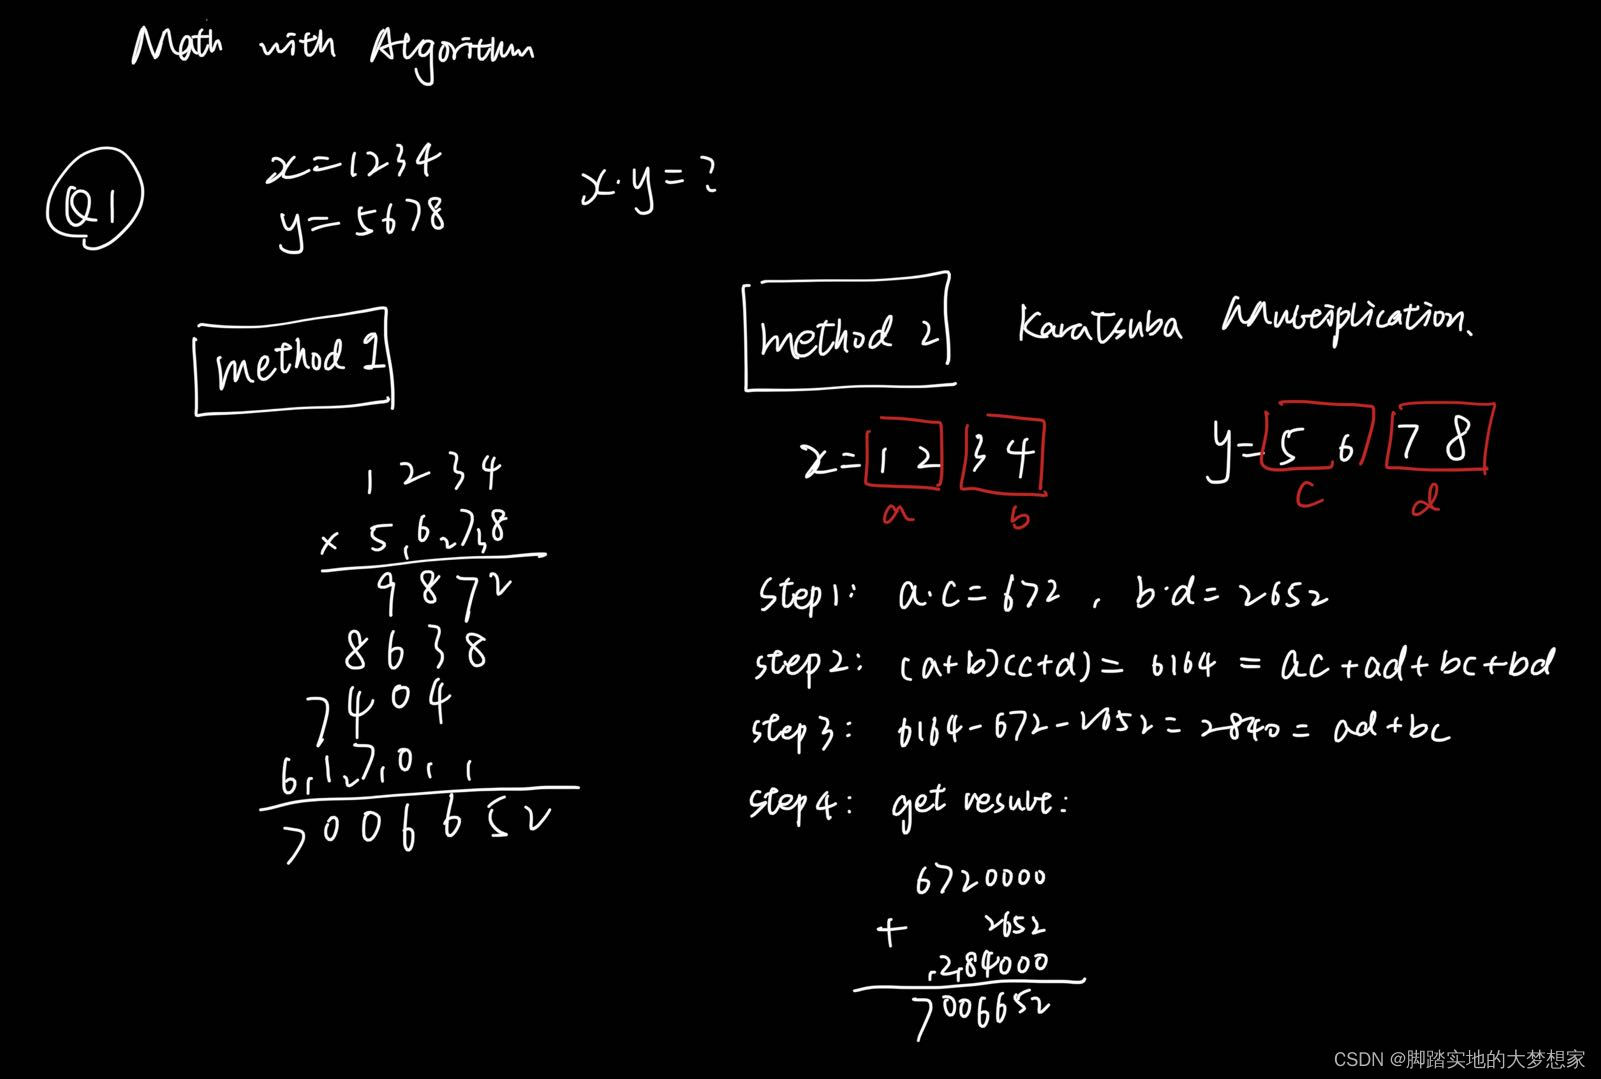 Math with Algorithm
Q1
x=1234
y=5678
x·y=?
method 1
1 2 3 4
× 5,6,7,8
9 8 7 2
8 6 3 8
7 4 0 4
6,1,7,0, ,
7 0 0 6 6 5 2
method 2 Karatsuba Multiplication.
x= 1 2 3 4 y= 5 6 7 8
a b c d
Step1: a·c=672 , b·d=2652
step2: (a+b)(c+d)= 6164 = ac+ad+bc+bd
step3: 6164-672-2652=2840= ad+bc
step4: get result:
6720000
+ 2652
,2,84000
7006652
CSDN @脚踏实地的大梦想家